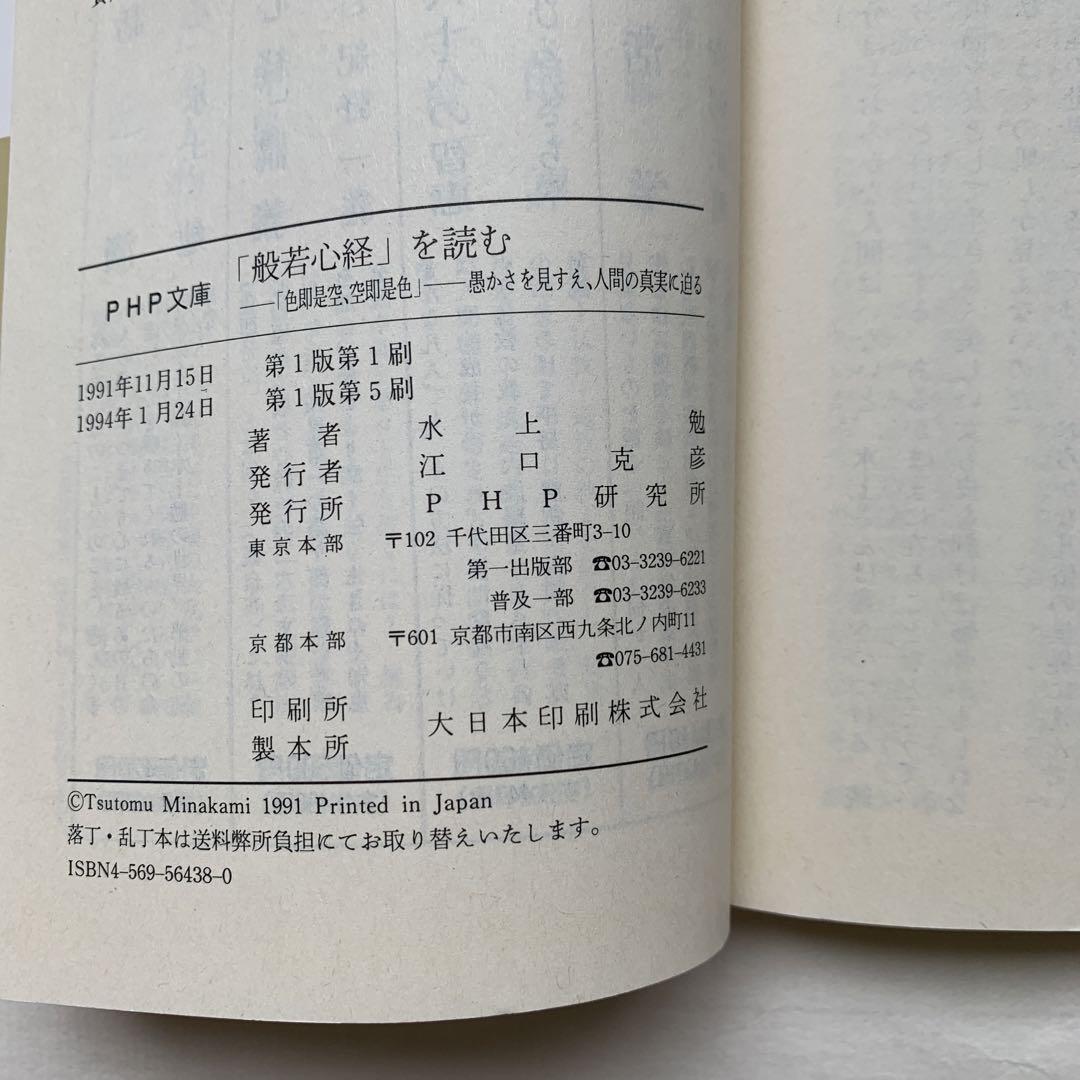 PHP文庫
「般若心経」を読む
――「色即是空、空即是色」――愚かさを見すえ、人間の真実に迫る
1991年11月15日 第1版第1刷
1994年1月24日 第1版第5刷
著者 水上勉
発行者 江口克彦
発行所 PHP研究所
東京本部 〒102 千代田区三番町3-10
第一出版部 ☎03-3239-6221
普及一部 ☎03-3239-6233
京都本部 〒601 京都市南区西九条北ノ内町11
☎075-681-4431
印刷所
製本所 大日本印刷株式会社
©Tsutomu Minakami 1991 Printed in Japan
落丁・乱丁本は送料弊所負担にてお取り替えいたします。
ISBN4-569-56438-0